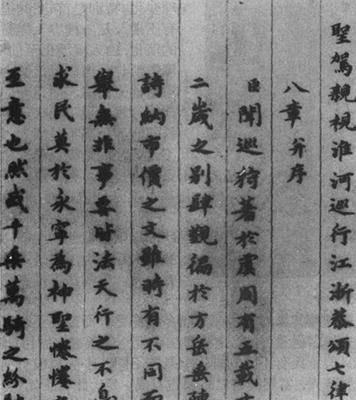 聖駕親視淮河巡行江浙恭頌七律
八章 并序
臣聞巡狩著於虞周有五載
二歲之別肆覲徧於方岳
詩納市價之文雖時有不同
舉無非事要皆法天行之不
求民莫於永寧為神聖惓惓
王意也然或千乘萬騎之紛